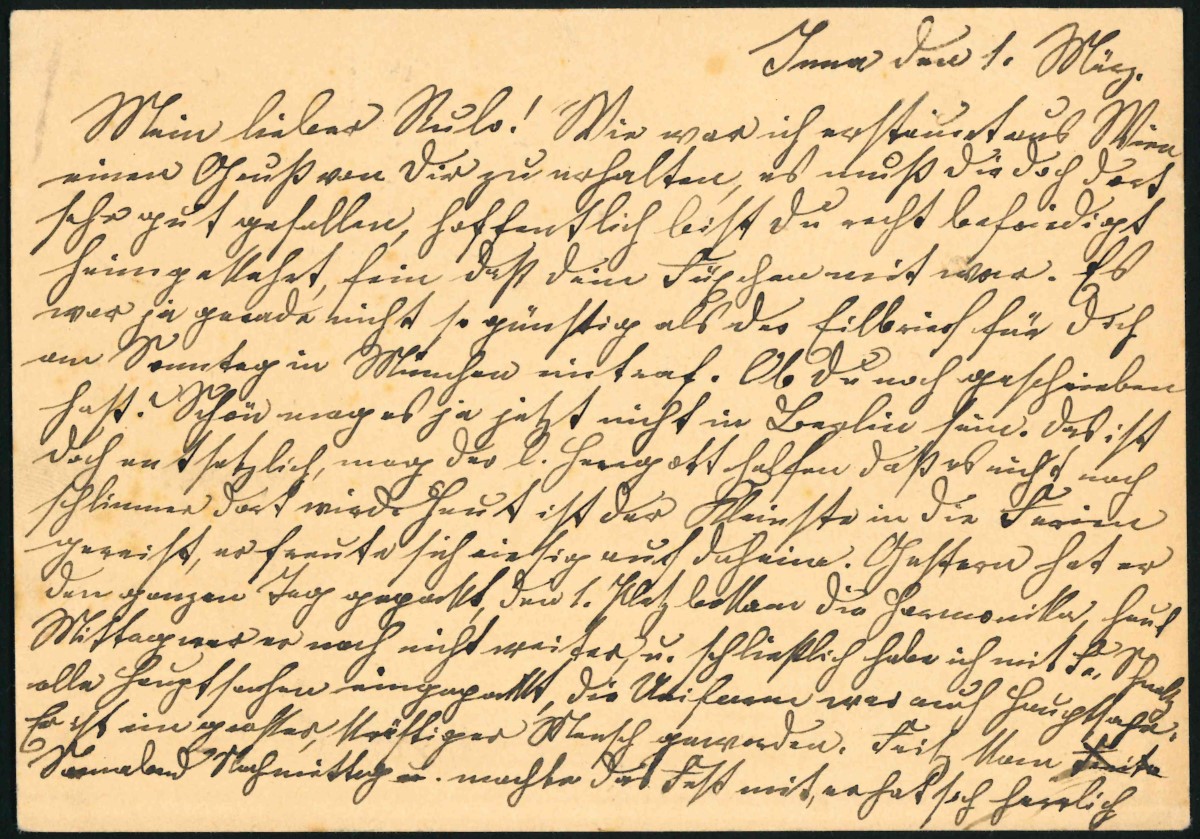 Jena den 1. März.
Mein lieber Rulo! Wie war ich erstaunt aus Wien
einen Gruß von Dir zu erhalten, es muß Dir doch dort
sehr gut gefallen, hoffentlich bist Du recht befriedigt
heimgekehrt, fein daß dein Füßchen mit war. Es
war ja gerade nicht so günstig als der Eilbrief für Dich
am Sonntag in München eintraf. Ob Du noch geschrieben
hast. Schön mag es ja jetzt nicht in Berlin sein. Das ist
doch entsetzlich, mag der l. Herrgott helfen daß es nicht noch
schlimmer dort wird. Heut ist der Kleinste in die Ferien
gereist, er freute sich riesig auf daheim. Gestern hat er
den ganzen Tag gepackt, den 1. Platz bekam die Harmonika, heut
Mittag war er noch nicht weiter, u. schließlich habe ich mit Fr.
alle Hauptsachen eingepackt, die Uniform war auch Hauptsache.
Er ist ein grosser, kräftiger Mensch geworden. Fritz kam
Sonnabend Nachmittag u. machte das Fest mit, er hat sich herrlich